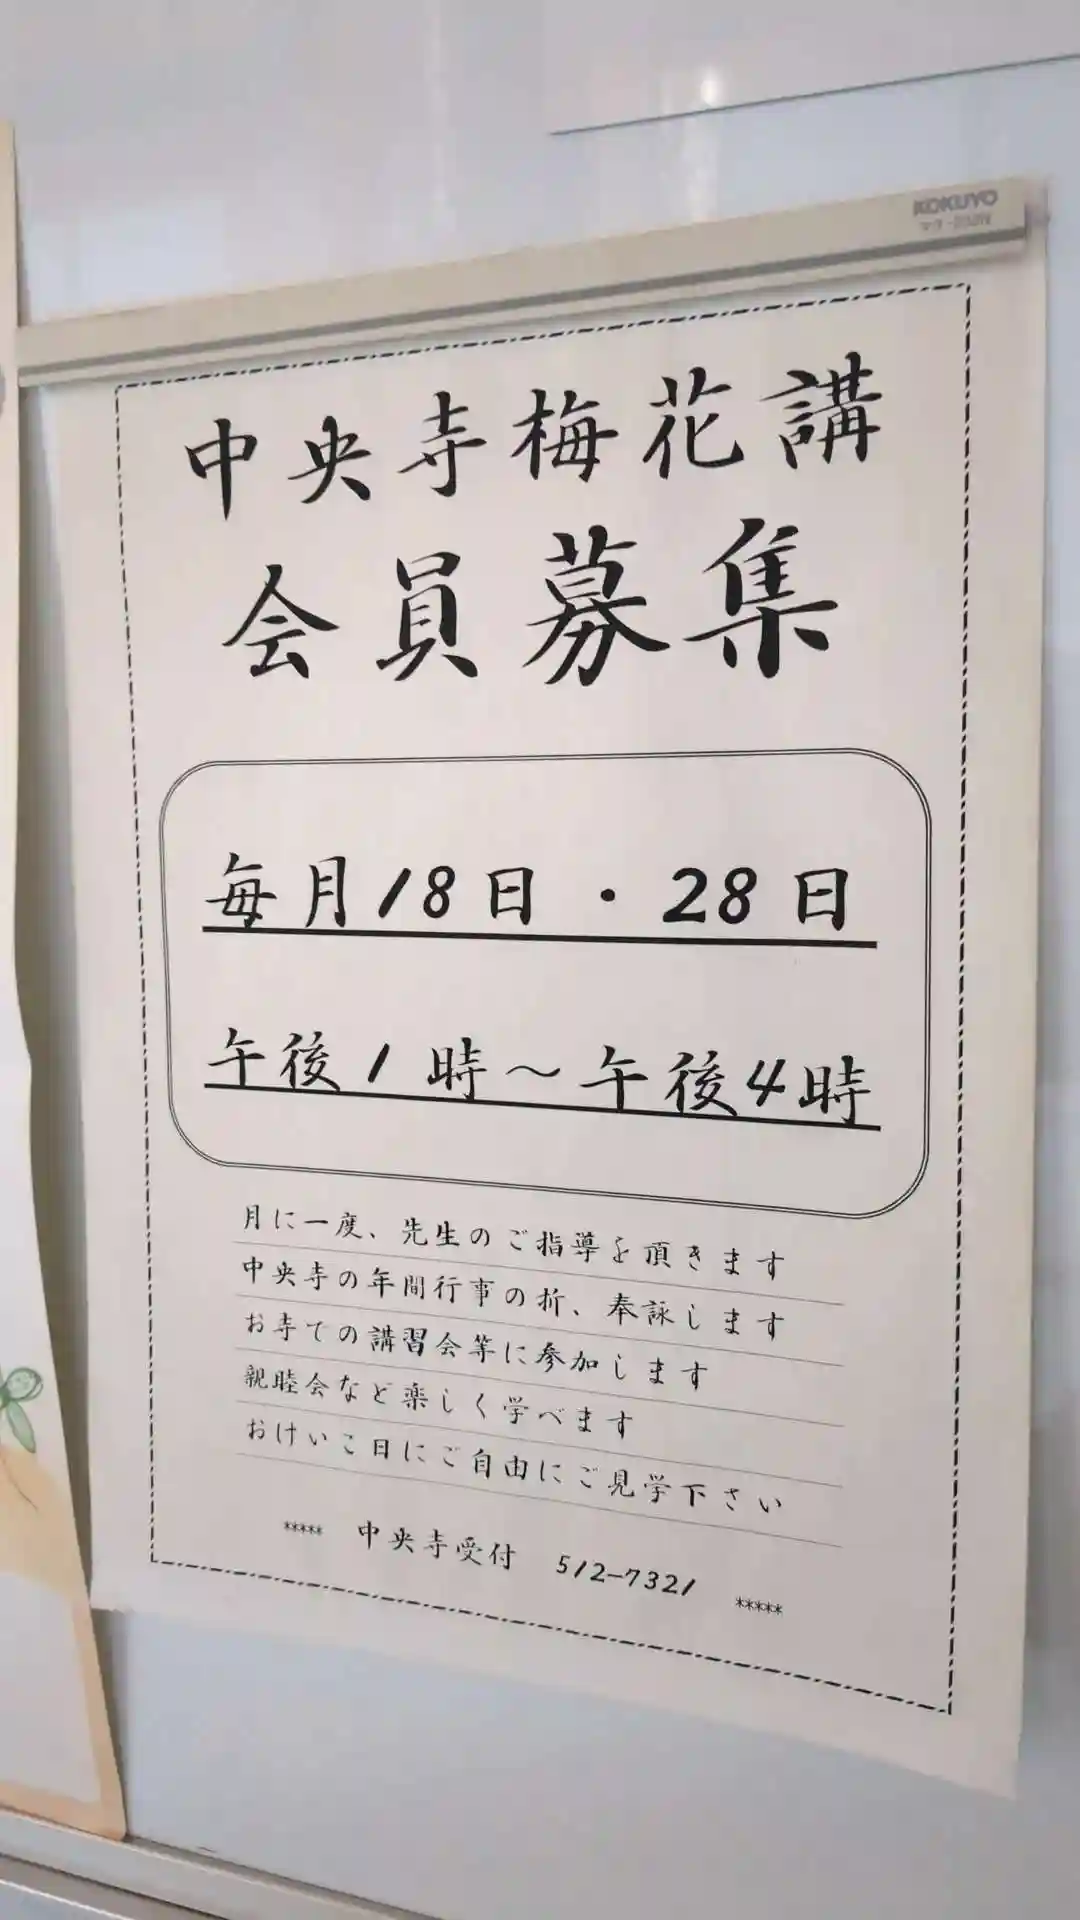 KOKUYO
中央寺梅花講
会員募集
毎月18日・28日
午後1時～午後4時
月に一度、先生のご指導を頂きます
中央寺の年間行事の折、奉詠します
お寺での講習会等に参加します
親睦会など楽しく学べます
おけいこ日にご自由にご見学下さい
***** 中央寺受付 512-7321 *****